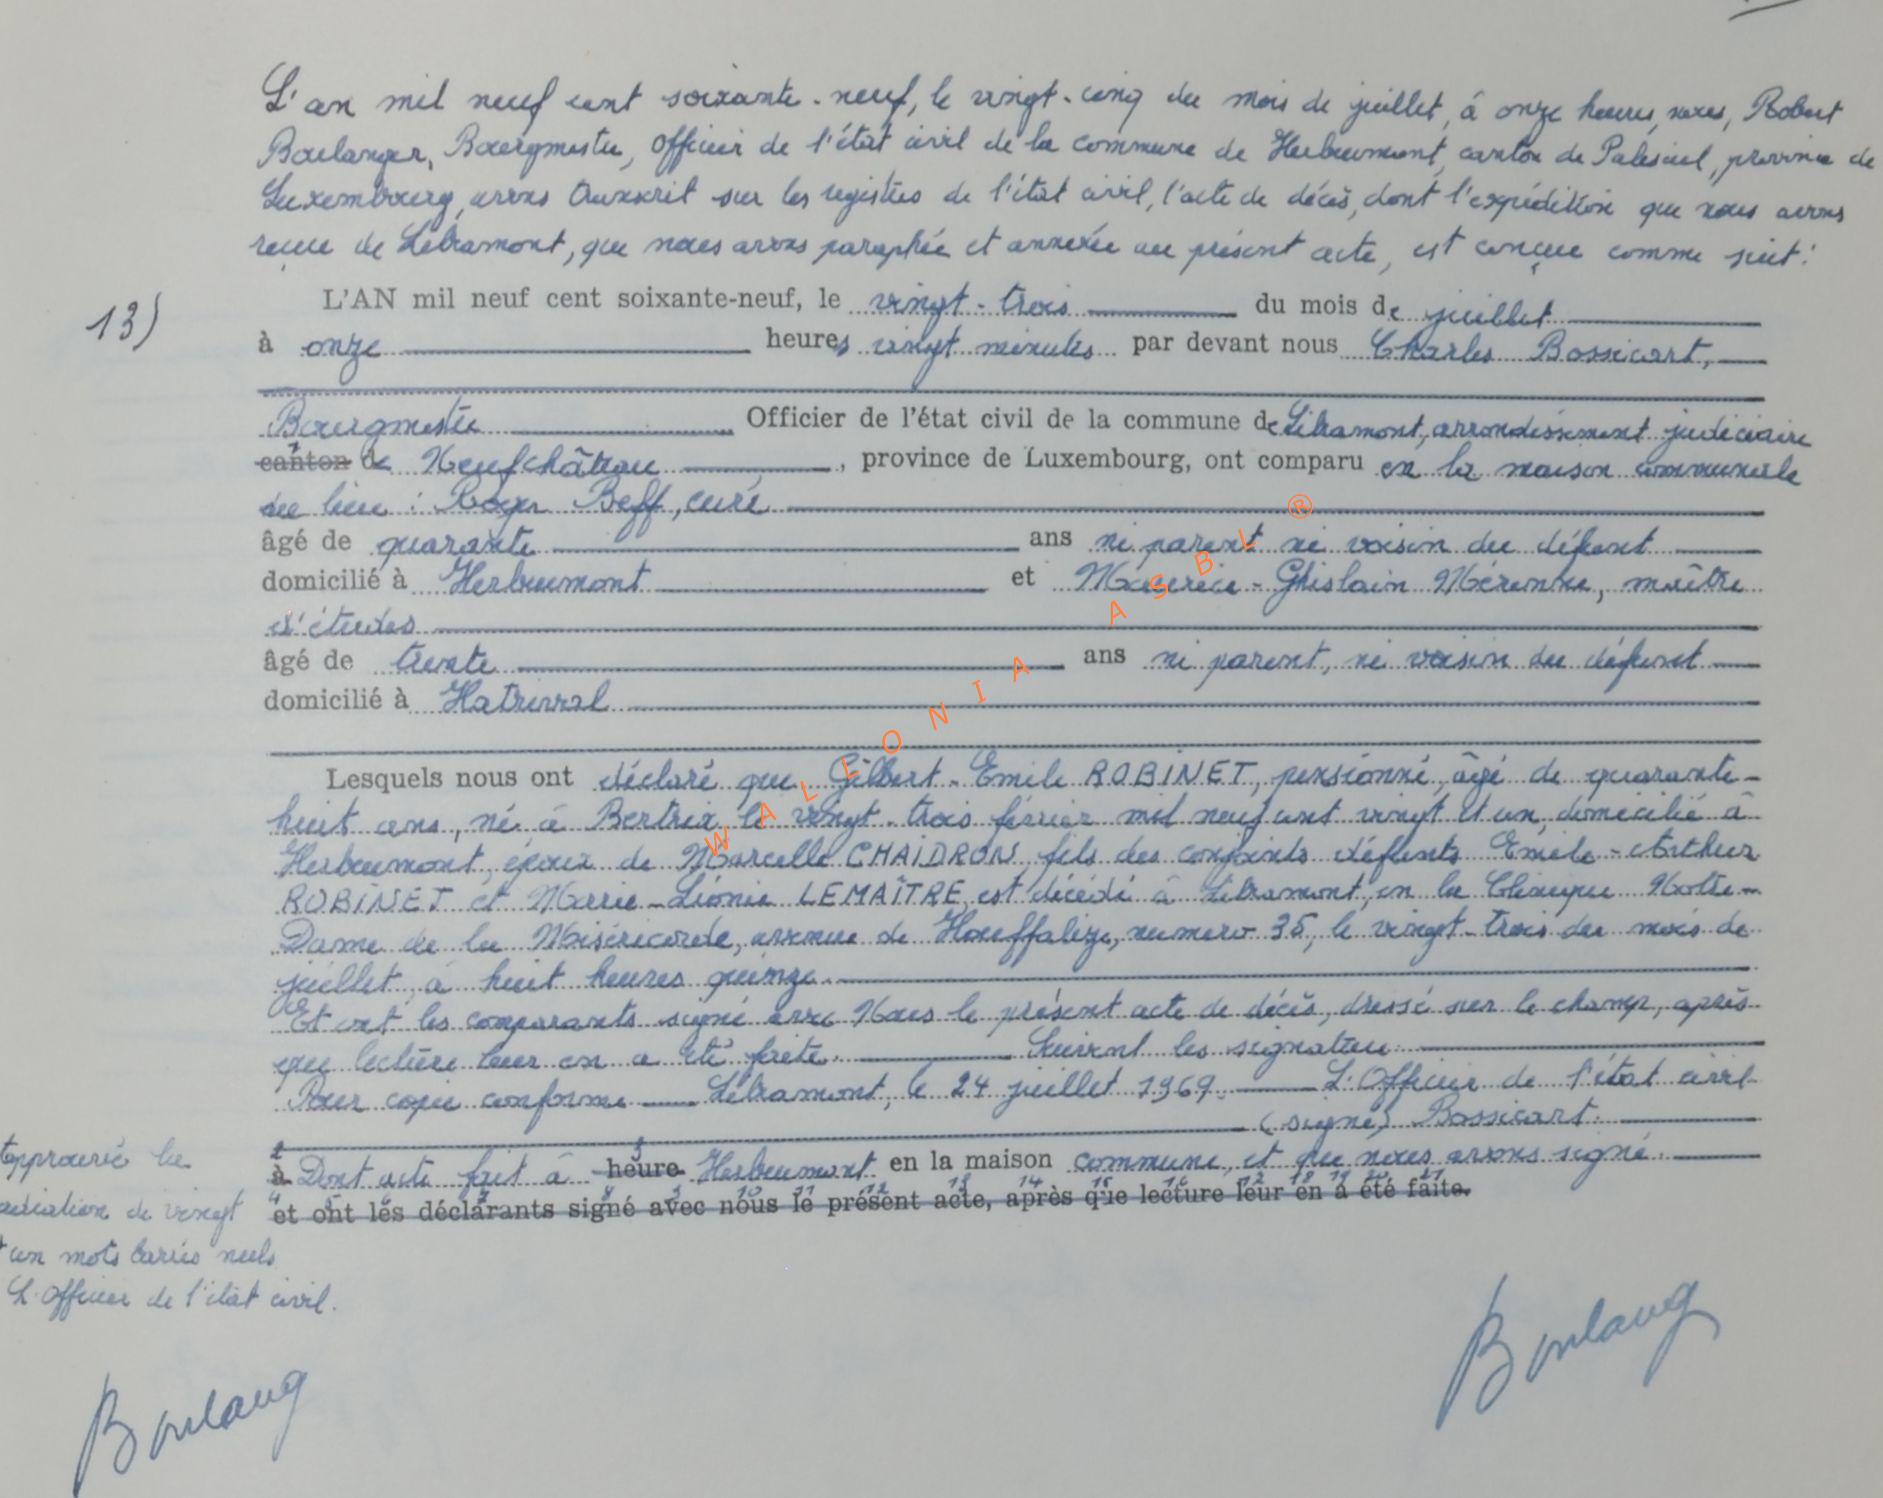 L'an mil neuf cent soixante-neuf, le vingt-cinq du mois de juillet, à onze heures, nous, Robert
Boulanger, Bourgmestre, Officier de l'état civil de la commune de Herbeumont, canton de Paliseul, province de
Luxembourg, avons transcrit sur les registres de l'état civil, l'acte de décès, dont l'expédition que nous avons
reçue de Libramont, que nous avons paraphée et annexée au présent acte, est conçue comme suit :
13)
L'AN mil neuf cent soixante-neuf, le vingt-trois du mois de juillet
à onze heures vingt minutes par devant nous Charles Bossicart,
Bourgmestre Officier de l'état civil de la commune de Libramont, arrondissement judiciaire
canton de Neufchâteau, province de Luxembourg, ont comparu en la maison communale
du lieu : Roger Beff, curé
âgé de quarante ans ni parent ni voisin du défunt
domicilié à Herbeumont et Maurice-Ghislain Mérenne, maître
d'études
âgé de trente ans ni parent, ni voisin du défunt
domicilié à Hatrival
Lesquels nous ont déclaré que Gilbert-Emile ROBINET, pensionné, âgé de quarante-
huit ans, né à Bertrix le vingt-trois février mil neuf cent vingt et un, domicilié à
Herbeumont, époux de Marcelle CHAIDRON, fils des conjoints défunts Emile-Arthur
ROBINET et Marie-Léonie LEMAÎTRE, est décédé à Libramont, en la Clinique Notre-
Dame de la Miséricorde, avenue de Houffalize, numéro 35, le vingt-trois du mois de
juillet, à huit heures quinze.
Et ont les comparants signé avec Nous le présent acte de décès, dressé sur le champ, après
que lecture leur en a été faite. Suivent les signatures
Pour copie conforme Libramont, le 24 juillet 1969. L'Officier de l'état civil
(signé) Bossicart.
à Dont acte fait à heure Herbeumont en la maison commune, et que nous avons signé.
et ont les déclarants signé avec nous le présent acte, après que lecture leur en a été faite.
Approuvé la
radiation de vingt
et un mots barrés nuls
L'Officier de l'état civil.
Boulang
Boulang
WALLONIA ASBL ®